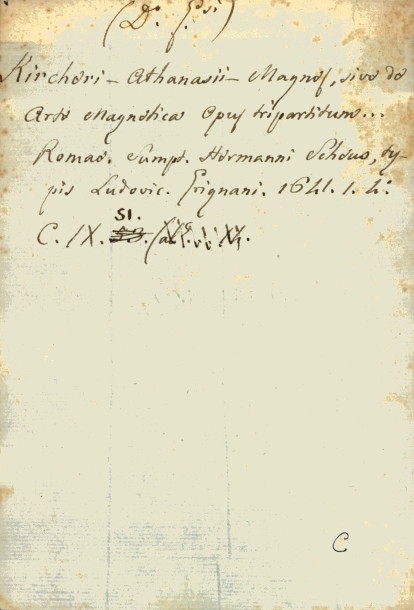 (D. f. si)
Kircheri - Athanasii - Magnes, sive de
Arte Magnetica Opus tripartitum...
Romae. Sump. Hermanni Scheus, ty-
pis Ludovic. Grignani. 1641. 1. 4.
51.
C. IX.
C